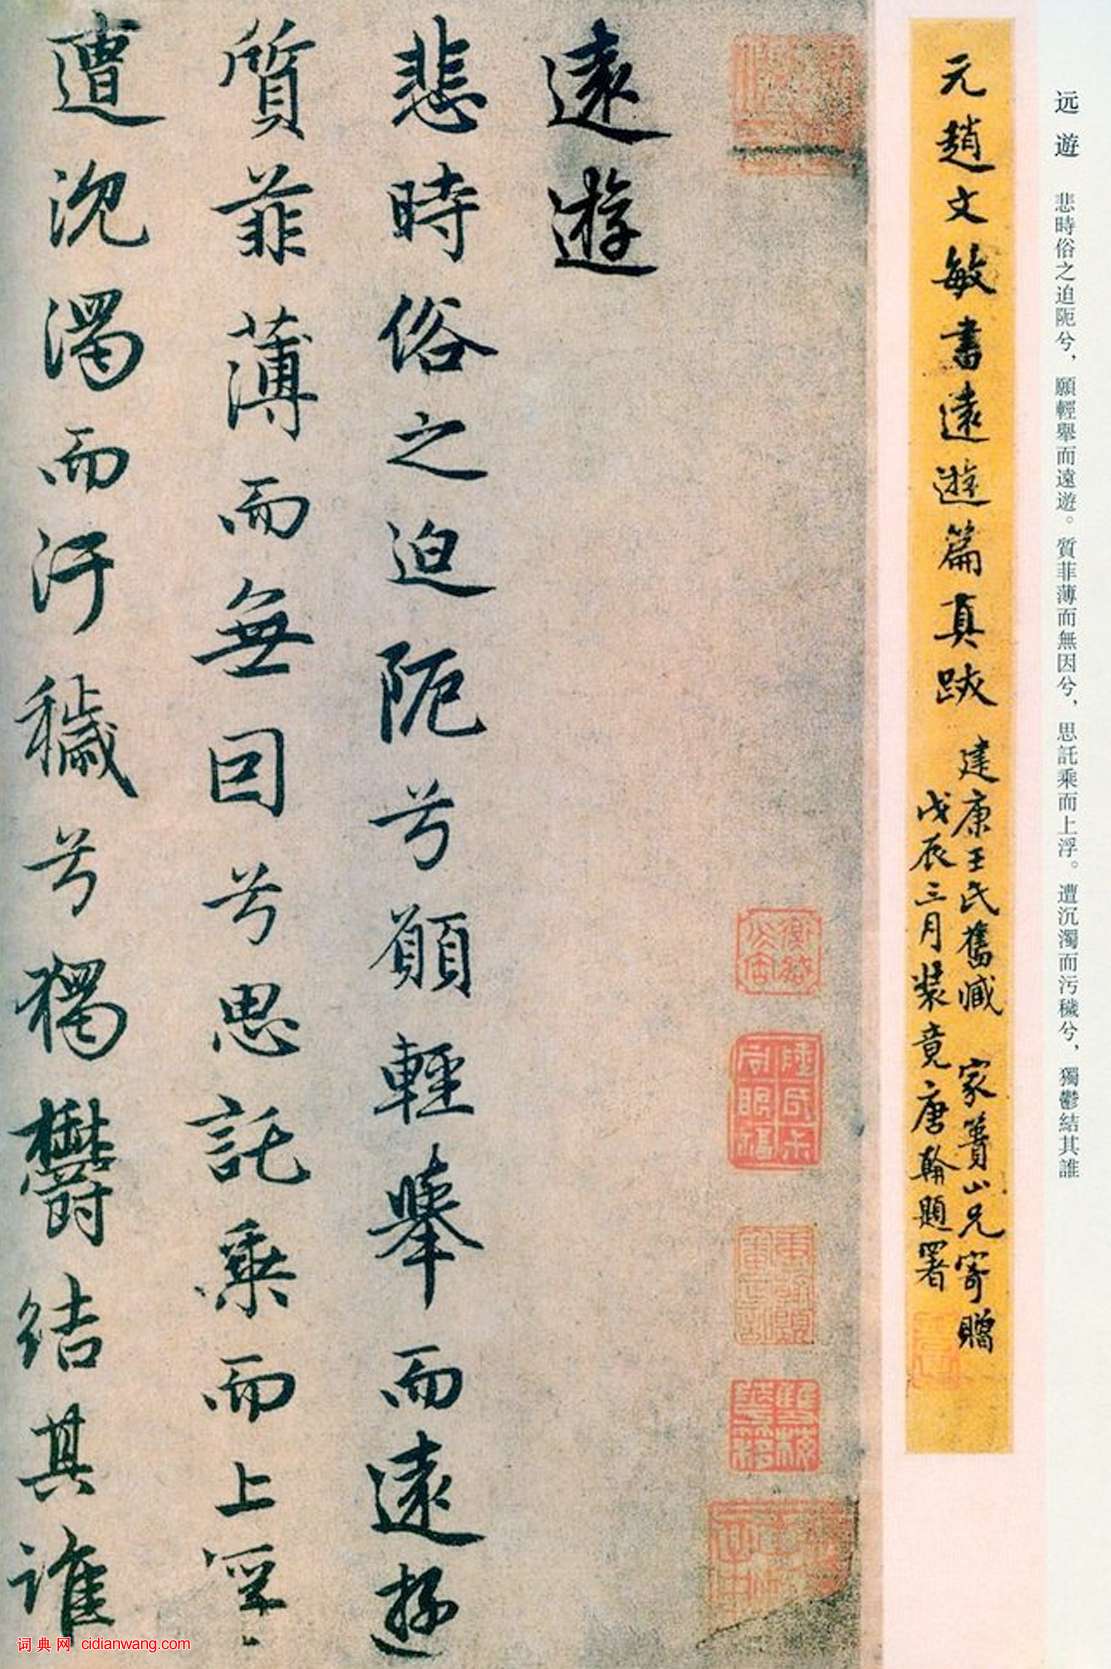 远遊 悲時俗之迫阨兮，願輕舉而遠遊。質菲薄而無因兮，思託乘而上浮。遭沉濁而污穢兮，獨鬱結其誰
元趙文敏書遠遊篇真跡
建康王氏舊藏 家簣山兄寄贈
戊辰三月裝竟唐翰題署
遠遊
悲時俗之迫阨兮願輕舉而遠遊
質菲薄而無因兮思託乘而上浮
遭沉濁而汙穢兮獨鬱結其誰
词典网 cidianwang.com